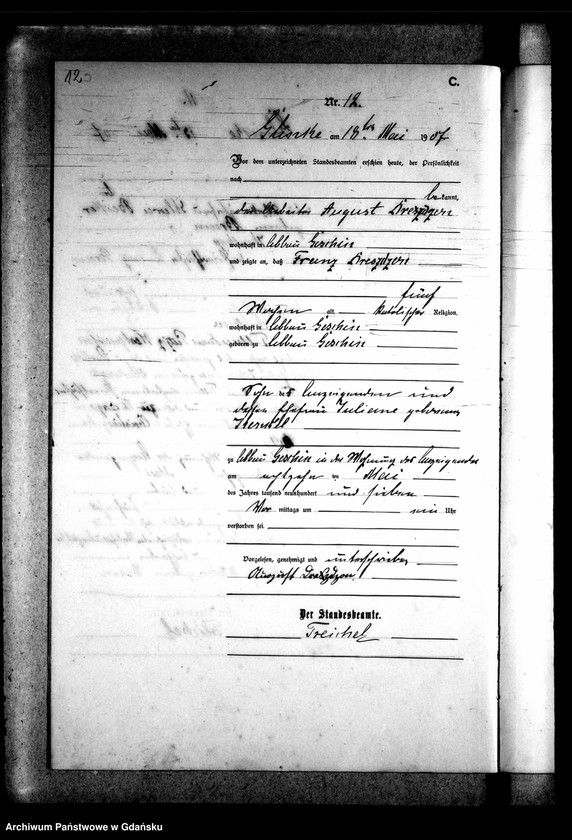 12
C.
Nr. 12.
am 18ten Mai 1907
Vor dem unterzeichneten Standesbeamten erschien heute, der Persönlichkeit
nach
bekannt,
der Arbeiter August
wohnhaft in Abbau Geschin
und zeigte an, daß Franz
fünf
Wochen alt, katolischer Religion,
wohnhaft in Abbau Geschin
geboren zu Abbau Geschin
Sohn des Anzeigenden und
dessen Ehefrau Juliane geborenen
zu Abbau Geschin in der Wohnung des Anzeigenden
am achtzehn ten Mai
des Jahres tausend neunhundert und sieben
Vor mittags um ein Uhr
verstorben sei.
Vorgelesen, genehmigt und unterschrieben
August
Der Standesbeamte.
Treichel
Archiwum Państwowe w Gdańsku